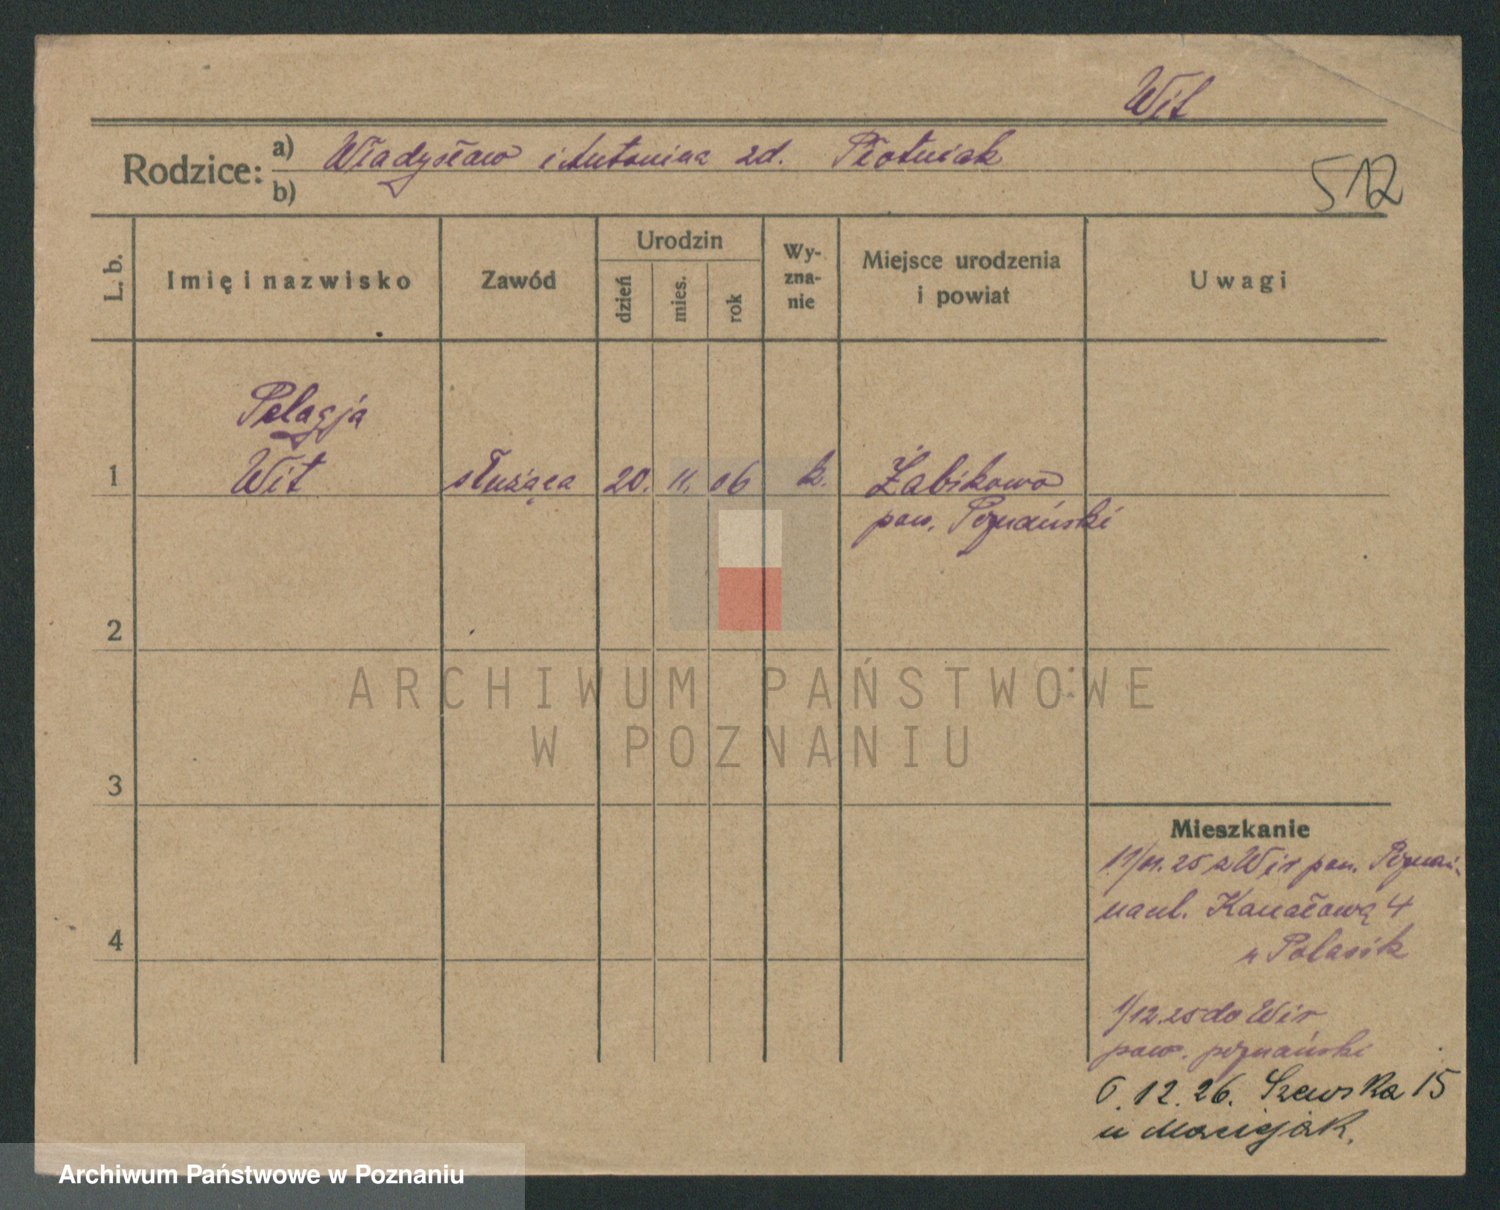 Wit
Rodzice: a) Władysław i Antonina zd. Płotniak
b)
512
L. b. Imię i nazwisko Zawód Urodzin dzień mies. rok Wyznanie Miejsce urodzenia i powiat Uwagi
Pelagja
1 Wit służąca 20. 11. 06 k. Żabikowo
pow. Poznański
2
ARCHIWUM PAŃSTWOWE
W POZNANIU
3
Mieszkanie
11/11. 25 z Wir pow. Poznań.
na ul. Kanałową 4
4
u Polasik
1/12. 25 do Wir
pow. poznański
6. 12. 26. Szewska 15
u Maciejak.
Archiwum Państwowe w Poznaniu